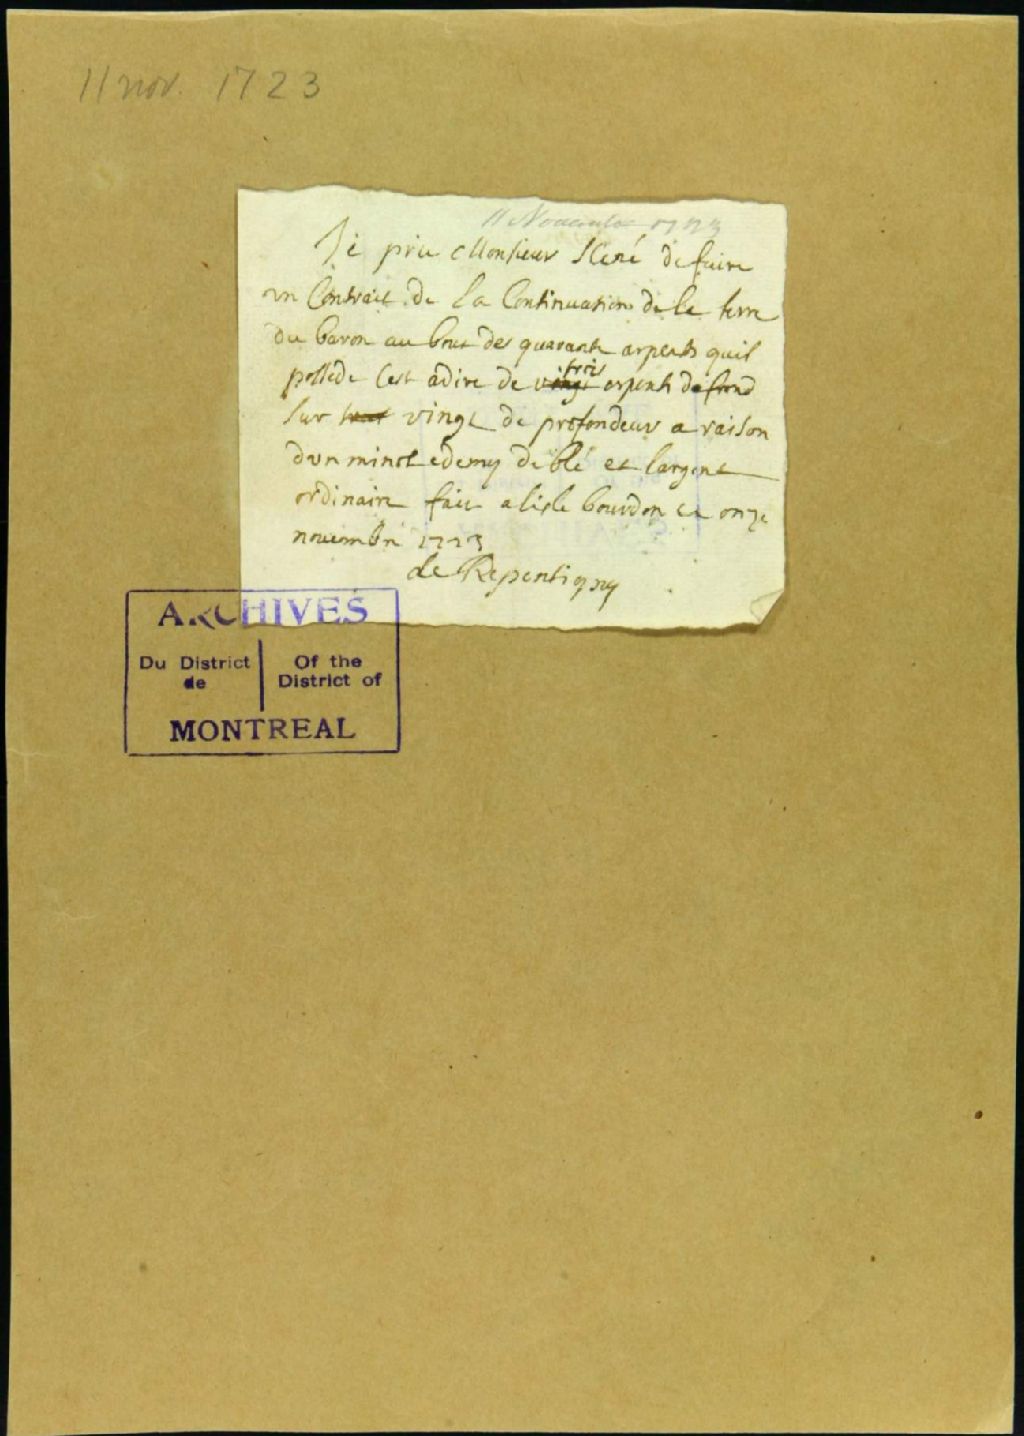 11 nov. 1723
11 Novembre 1723
Je prie Monsieur Sené de faire
un Contrait de la Continuation de la terre
du baron au bout des quarante arpents quil
possede Cest adire de vingt trois arpents de front
sur vingt de profondeur a raison
dun minot edemy de blé et largent
ordinaire fait a lisle bourdon ce onze
novembre 1723
de Repentigny
ARCHIVES
Du District de
Of the District of
MONTREAL